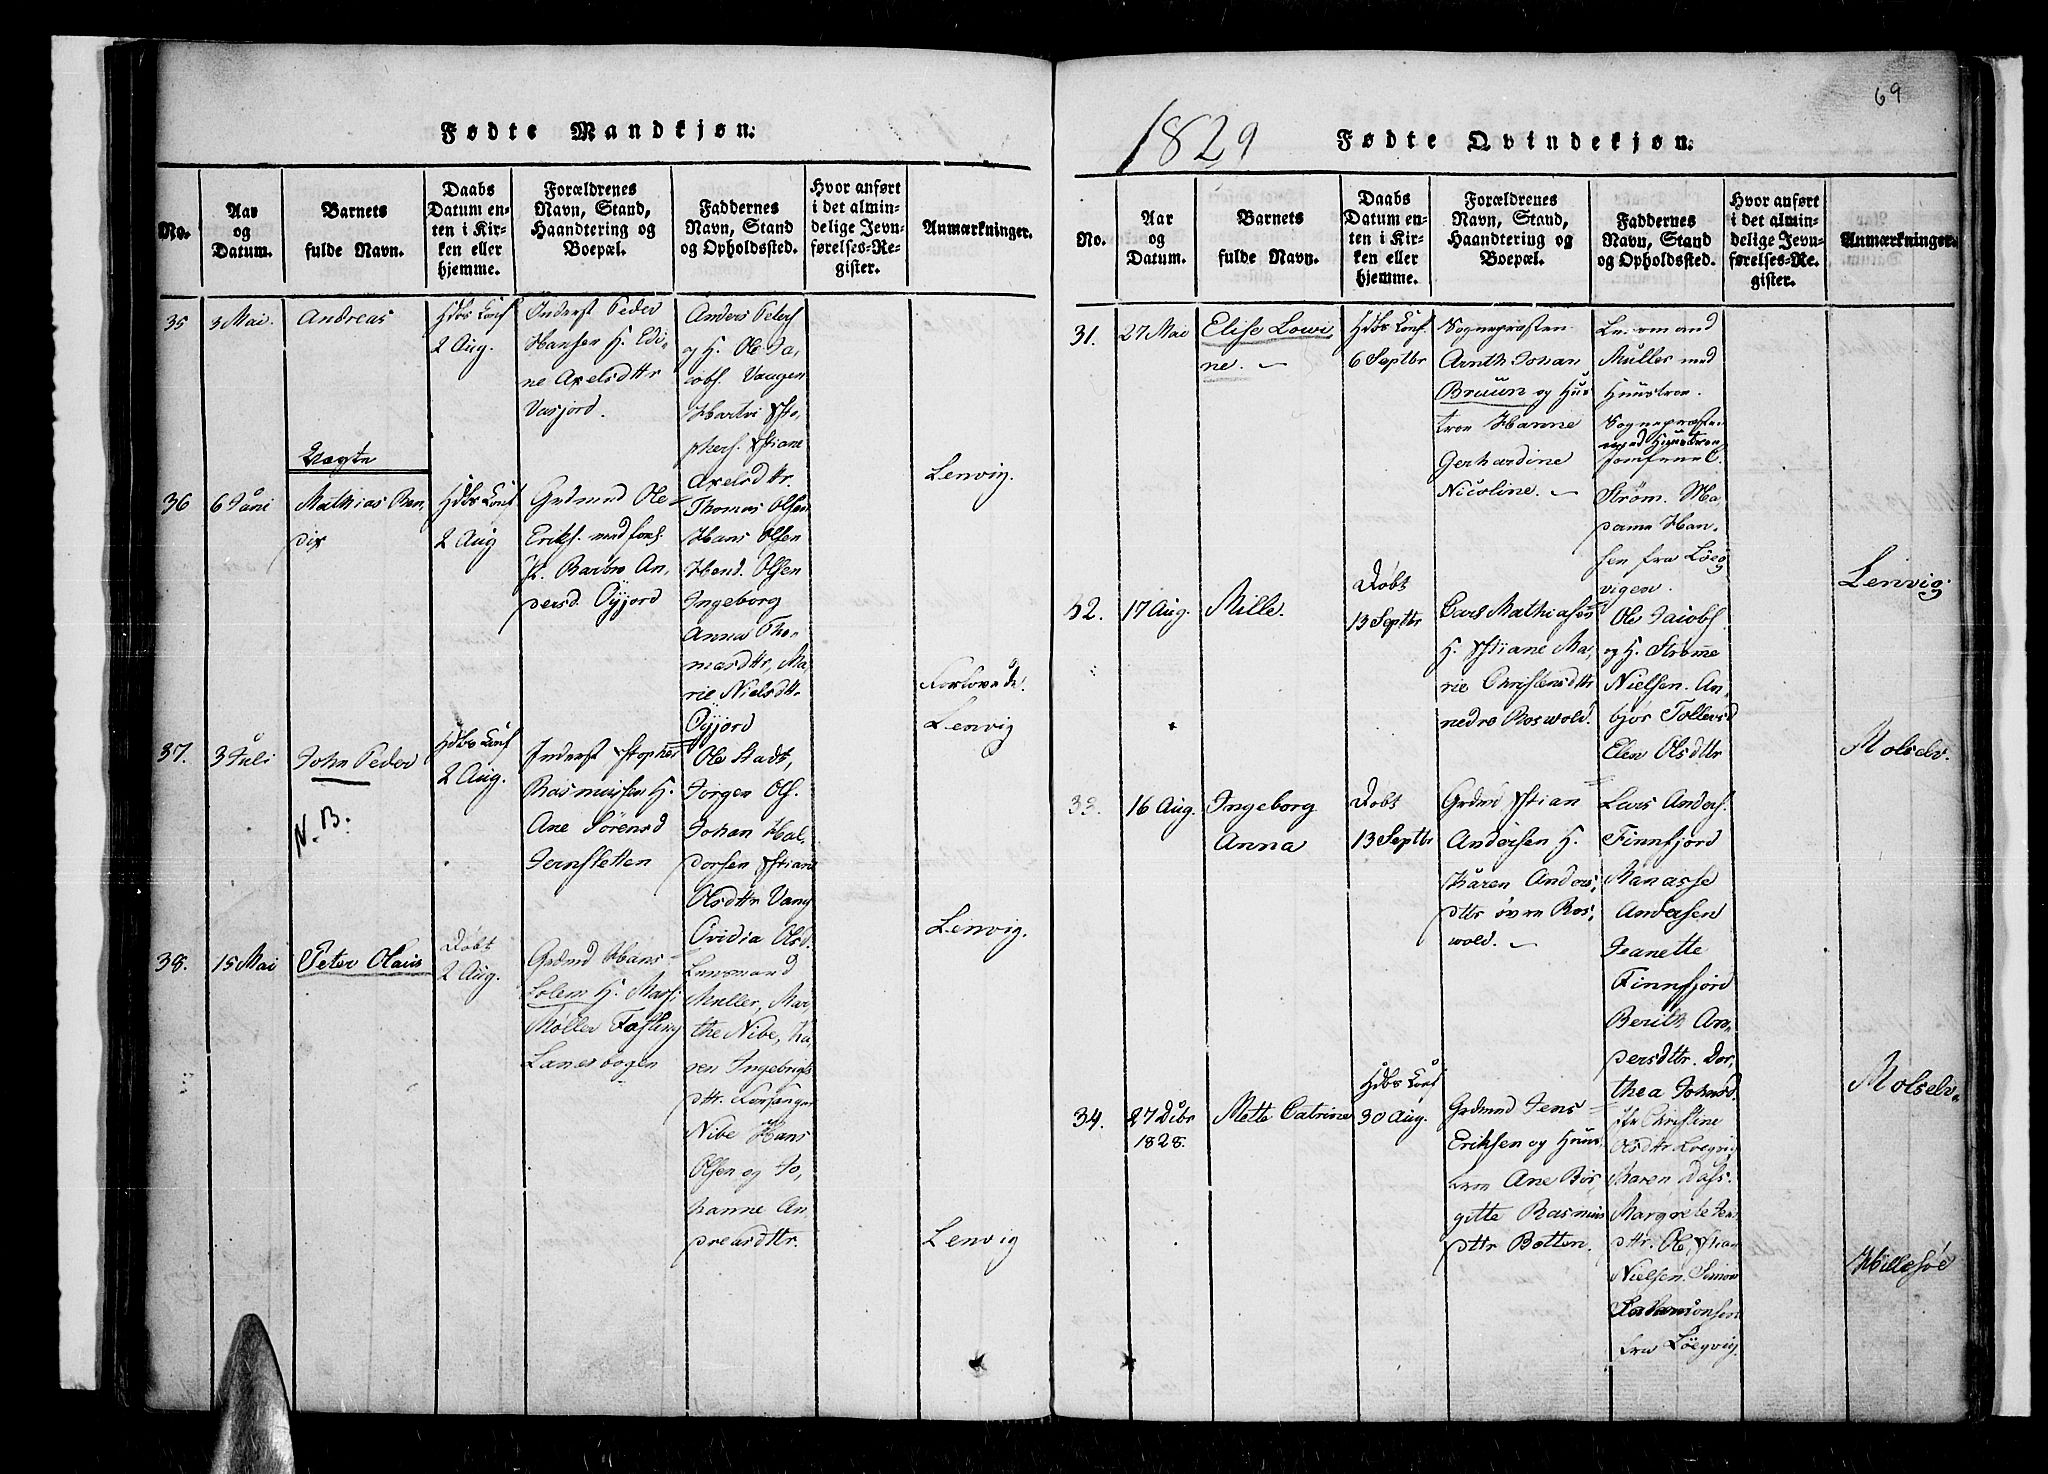 Fødte Mandkjøn.
No.
Aar
og
Datum.
Barnets
fulde Navn.
Daabs
Datum en-
ten i Kir-
ken eller
hjemme.
Forældrenes
Navn, Stand,
Haandtering og
Boepæl.
Faddernes
Navn, Stand
og Opholdssted.
Hvor anført
i det almin-
delige Jevn-
førelses-Re-
gister.
Anmærkninger.
35
3 Mai.
Andreas
Hdbs Conf
2 Aug.
Inderst Peder
Hansen H. Edi-
ne Axelsdttr
Vasjord.
Anders Peters
og H. Ole Ja,
cobs. Vangen
Hartvi Xsto-
phers. Xstiane
Axelsdttr.
Lenvig.
Uægte
36
6 Juni
Mathias Ben,
dix
Hdbs Conf
2 Aug
Grdmnd Ole
Eriks. med
P. Barbro An,
dersd. Oyjord
Thomas Olsen
Hans Olsen
Hend. Olsen
Ingeborg
Anna Tho-
masdttr, Ma,
rie Nielsdttr
Oyjord
Forlovede.
Lenvig
37.
3 Juli
John Peder
N.B.
Hdbs Conf
2 Aug.
Inderst Xstopher
Rasmussen H.
Ane Sörensd
Jernsletten
Ole Stadt,
Jörgen Ols.
Johan Hal,
dorsen Xstiane
Olsdttr Vang
Ovidia Olsd.
Lenvig.
38.
15 Mai
Peter Olaus
Døbt
2 Aug.
Grdmd Hans
Solem H. Marsi
Møller Fosling
Lanesbogen
Lensmand
Müller, Mar,
the Nibe, Ka,
ren Ingebrigts
dttr. Korsanger
Nibe Hans
Olsen og Jo,
hanne An,
dreasdttr.
Lenvig
69
1829
Fødte Qvindekjøn.
No.
Aar
og
Datum.
Barnets
fulde Navn.
Daabs
Datum en-
ten i Kir-
ken eller
hjemme.
Forældrenes
Navn, Stand,
Haandtering og
Boepæl.
Faddernes
Navn, Stand
og Opholdssted.
Hvor anført
i det almin-
delige Jevn-
førelses-Re-
gister.
Anmærkninger.
31.
27 Mai
Elise Lowi
ne. -
Hdbs Conf.
6 Septbr
Sognepræsten
Arnth Johan
Bruun og Hus
troe Hanne
Gerhardine
Nicoline. -
Lensmand
Müller med
Huustroe.
Sognepræsten
med Huustroe
Jomfrue C.
Strøm. Ma,
dame Han-
sen fra Löeg
vigen.
Lenvig.
32.
17 Aug.
Mille.
Døbt
13 Septbr
Lars Mathiasen
H. Xstiane Ma,
rie Christensdttr
nedre Roswold.
Ole Jacobs.
og H. Strømme
Nielsen. An,
björ Tollevsd
Elen Olsdttr
Molselv.
33.
16 Aug.
Ingeborg
Anna
Døbt
13 Septbr
Grdmd Xstian
Andersen H.
Karen Anders,
dttr øvre Ros,
wold. -
Lars Anders.
Finnfjord
Manasse
Andersen
Jeanette
Finnfjord
Berith An,
dersdttr. Dor,
thea Johnsd
Molselv.
34.
27 Dcbr
1828.
Mette Catrine
Hdbs Conf
30 Aug.
Grdmnd Jens
Eriksen og Huus
troe Ane Bir,
gitte Rasmus
dttr Botten.
Christine
Olsdttr Löegvig
Maren Dass.
Margrete Jens
dttr. Ole, Xstian
Nielsen. Simon
fra Löegvig.
Hillesöe